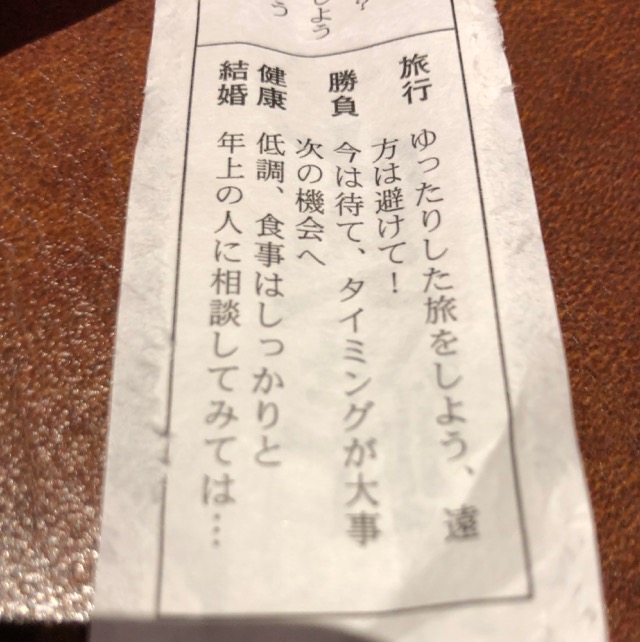 ？
しよう
う
旅行 ゆったりした旅をしよう、遠
方は避けて！
勝負 今は待て、タイミングが大事
次の機会へ
健康 低調、食事はしっかりと
結婚 年上の人に相談してみては…